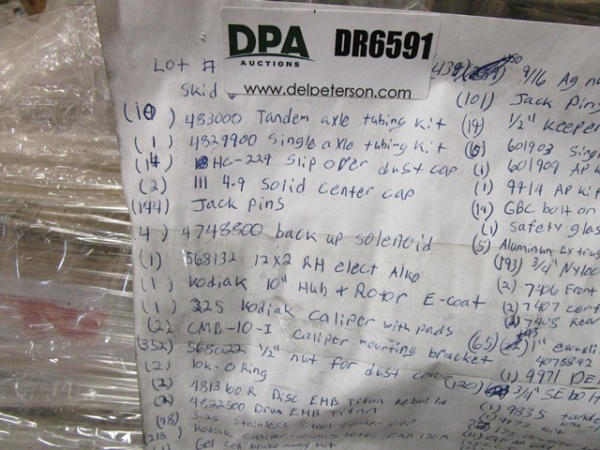 DPA
AUCTIONS
DR6591
www.delpeterson.com
Lot #
Skid
(10) 483000 Tandem axle tubing kit
(1) 4829900 Single axle tubing kit
(14) HC-229 Slip over dust cap
(2) 111 4.9 Solid center cap
(144) Jack Pins
4) 4748800 back up solenoid
(1) 568132 12x2 RH elect Alko
(1) Kodiak 10" Hub + Rotor E-coat
(1) 225 Kodiak Caliper with pads
(22) CMB-10-I Caliper mounting bracket
(352) 568022 1/2" nut for dust
(2) 10k-O Ring
(2) 4813600R Disc EHB Titan Rebuild
4822500 Drum EHB Titan
(78) stainless steel center cap
(218) Kodiak caliper mounting bolts
Gel Cell brake away kit
9/16 Ag nu
(101) Jack Pins
(19) 1/2" Keeper
601903 Singl
(1) 601909 AP K
(1) 9714 AP Kit
(14) GBC bolt on
(1) Safety glas
(5) Aluminum Extrus
(193) 3/4" Nyloc
(2) 7406 Front
(2) 7407 cent
7408 Rear
(65) 1"
4078892
(1) 9971 DE
(120) 3/4" SE bolt
(1) 9835 tande